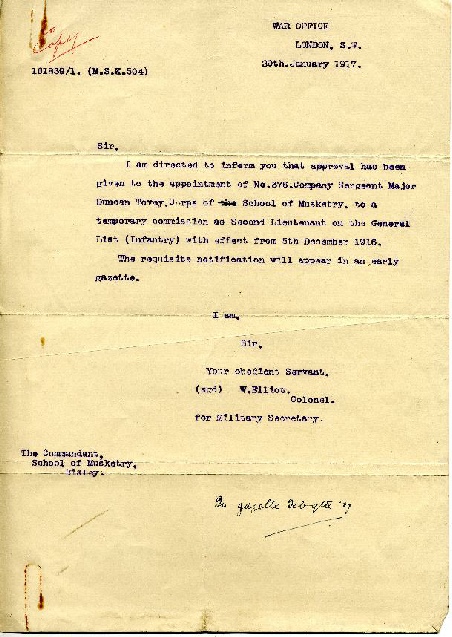 Copy
WAR OFFICE
LONDON, S.W.
30th.January 1917.
181839/1. (M.S.K.504)
Sir.
I am directed to inform you that approval has been
given to the appointment of No.876.Company Sergeant Major
Duncan Tovey.Corps of the School of Musketry. to a
temporary commission as Second Lieutenant on the General
List (Infantry) with effect from 5th December 1916.
The requisite notification will appear in an early
gazette.
I am.
Sir.
Your obedient Servant.
(sgd) W.Elliot.
Colonel.
for Military Secretary.
The Commandant.
School of Musketry.
In gazette Feb '17